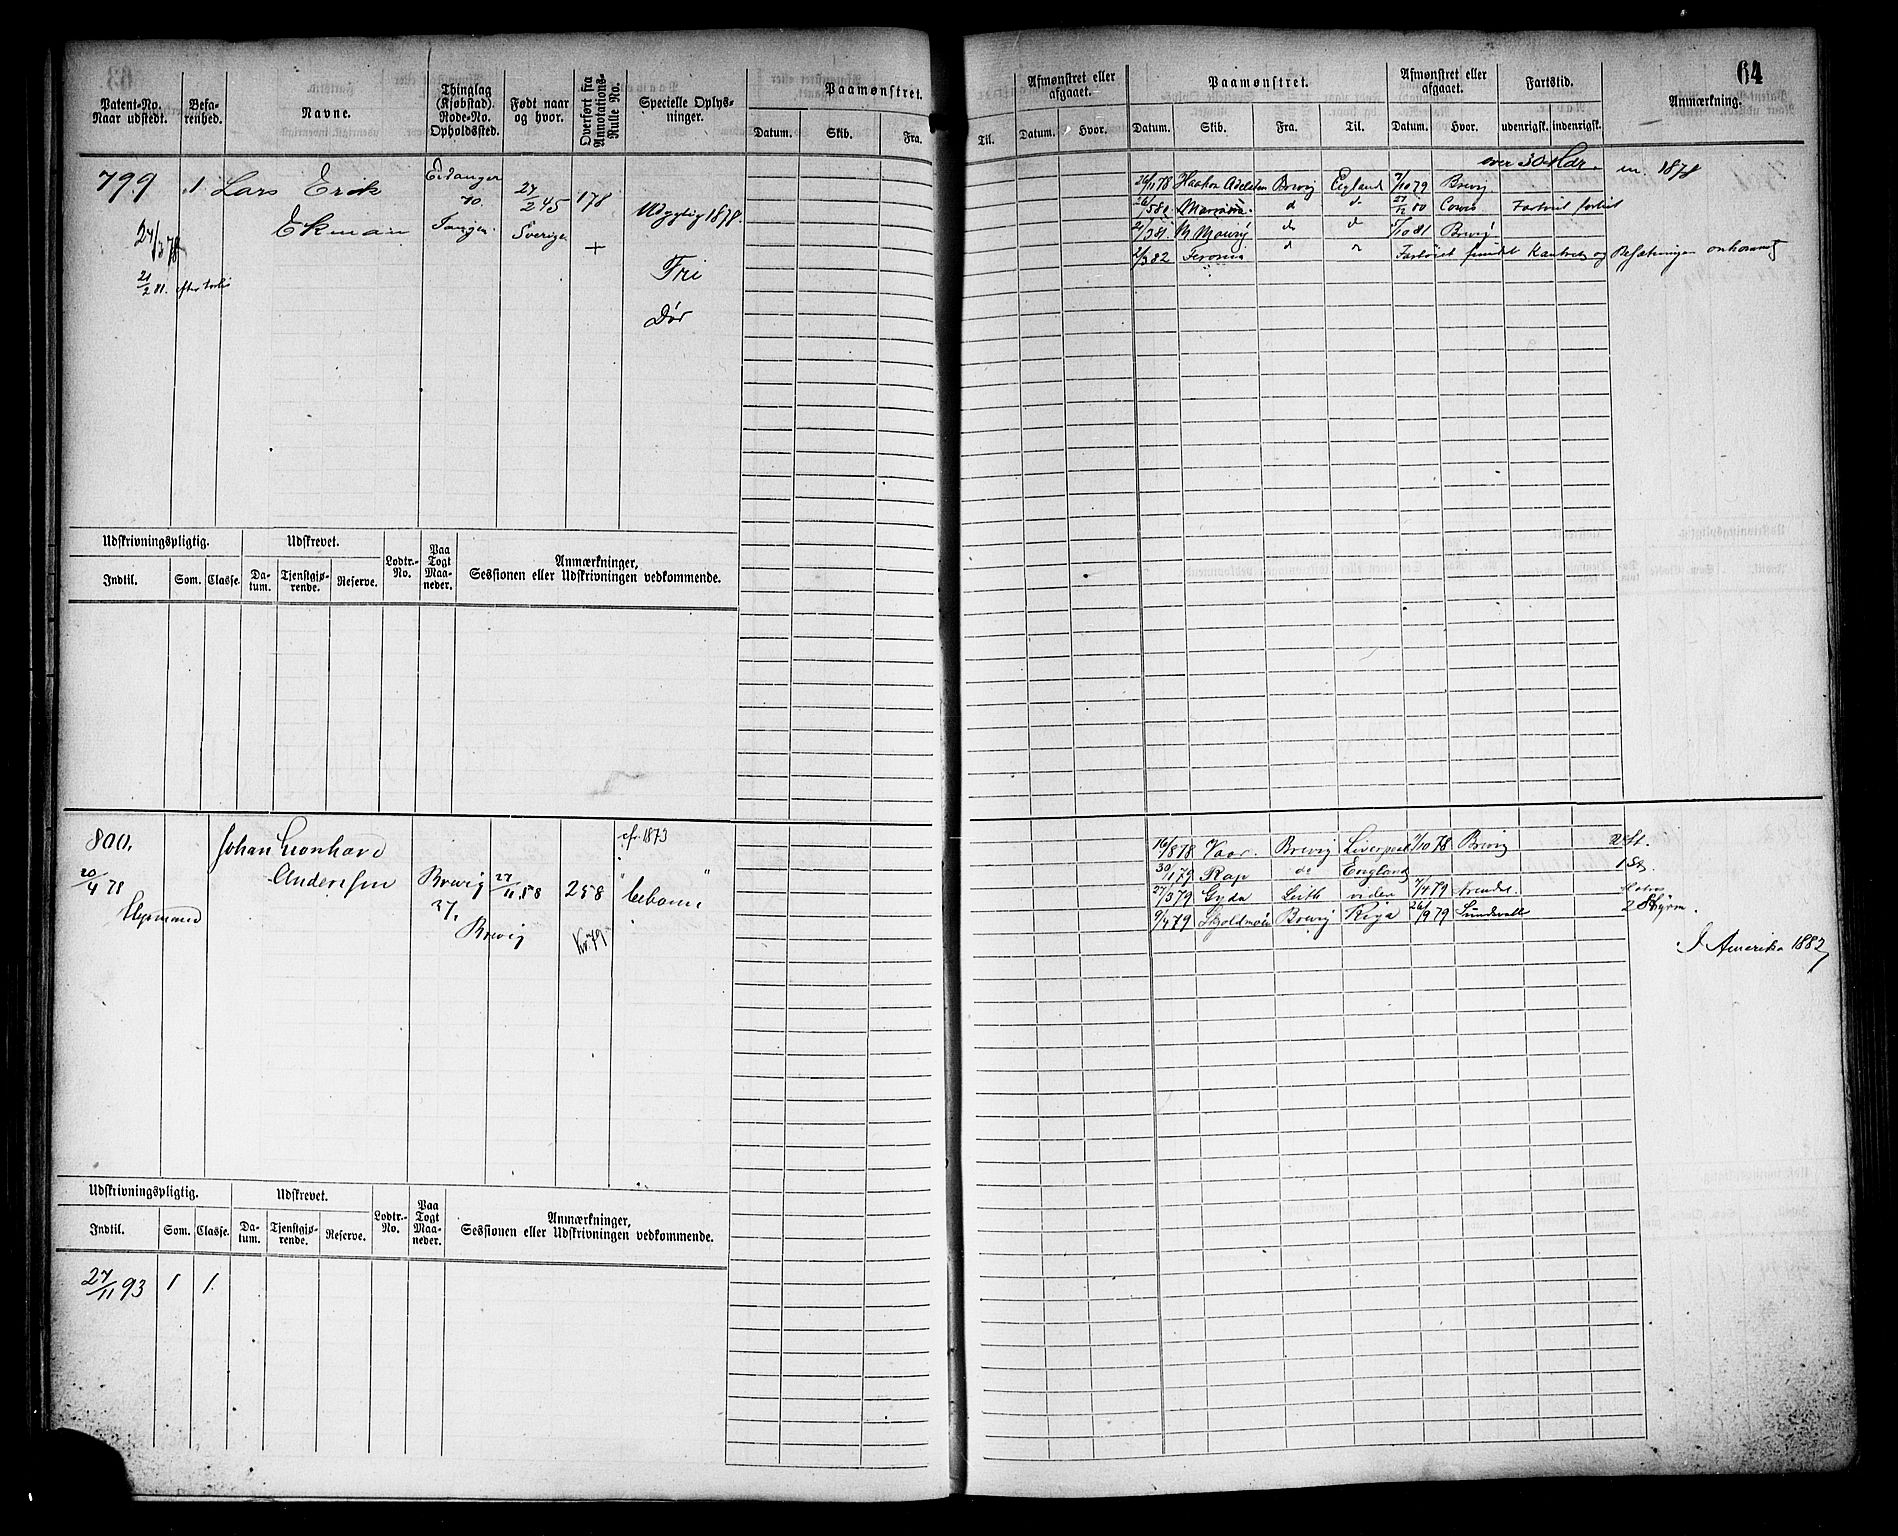 64
Patent-No. Naar udstedt.
Befarenhed.
Navne.
Thinglag (Kjøbstad). Rode-No. Opholdssted.
Født naar og hvor.
Overført fra Annotations-Rulle No.
Specielle Oplysninger.
Paamønstret.
Datum. Skib. Fra. Til.
Afmønstret eller afgaaet.
Datum. Hvor.
Paamønstret.
Datum. Skib. Fra. Til.
Afmønstret eller afgaaet.
Datum. Hvor.
Fartstid.
udenrigsk. indenrigsk.
Anmærkning.
799 1 Lars Erik Eidanger 27/2 45 178 Udygtig 1878.
Ekman 10. Tangen Sverige +
27/3 78
21/2 81.
Fri
Dør
over 30 Mdr. 1878
26/11 78 Haakon Adelsten Brevig England 7/10 79 Brevig
26/5 80 d d 80 Cowes
21/3 81 do d 7/10 81 Brevig
2/3 82 d Fartøiet fundet Kantret og Besætningen omkommet
Udskrivningspligtig. Udskrevet. Lodtr.-No. Paa Togt Maaneder. Anmærkninger, Sessionen eller Udskrivningen vedkommende.
Indtil. Som. Classe. Datum. Tjenstgjørende. Reserve.
800. Johan Leonhard cfr. 1873
Andersen Brevig 27/11 58 258
20/4 78 37.
Styrmand Brevig Kr. 79
16/8 78 Vaar. Brevig Liverpool 7/10 78 Brevig
30/1 79 Rap do England
27/3 79 Gyda Leith 7/4 79 Arendal.
9/4 79 Skjoldmøen Brevig Riga 26/9 79 Sundsvall 2 Styrm.
I Amerika 1882
Udskrivningspligtig. Udskrevet. Lodtr.-No. Paa Togt Maaneder. Anmærkninger, Sessionen eller Udskrivningen vedkommende.
Indtil. Som. Classe. Datum. Tjenstgjørende. Reserve.
27/11 93 1 1.